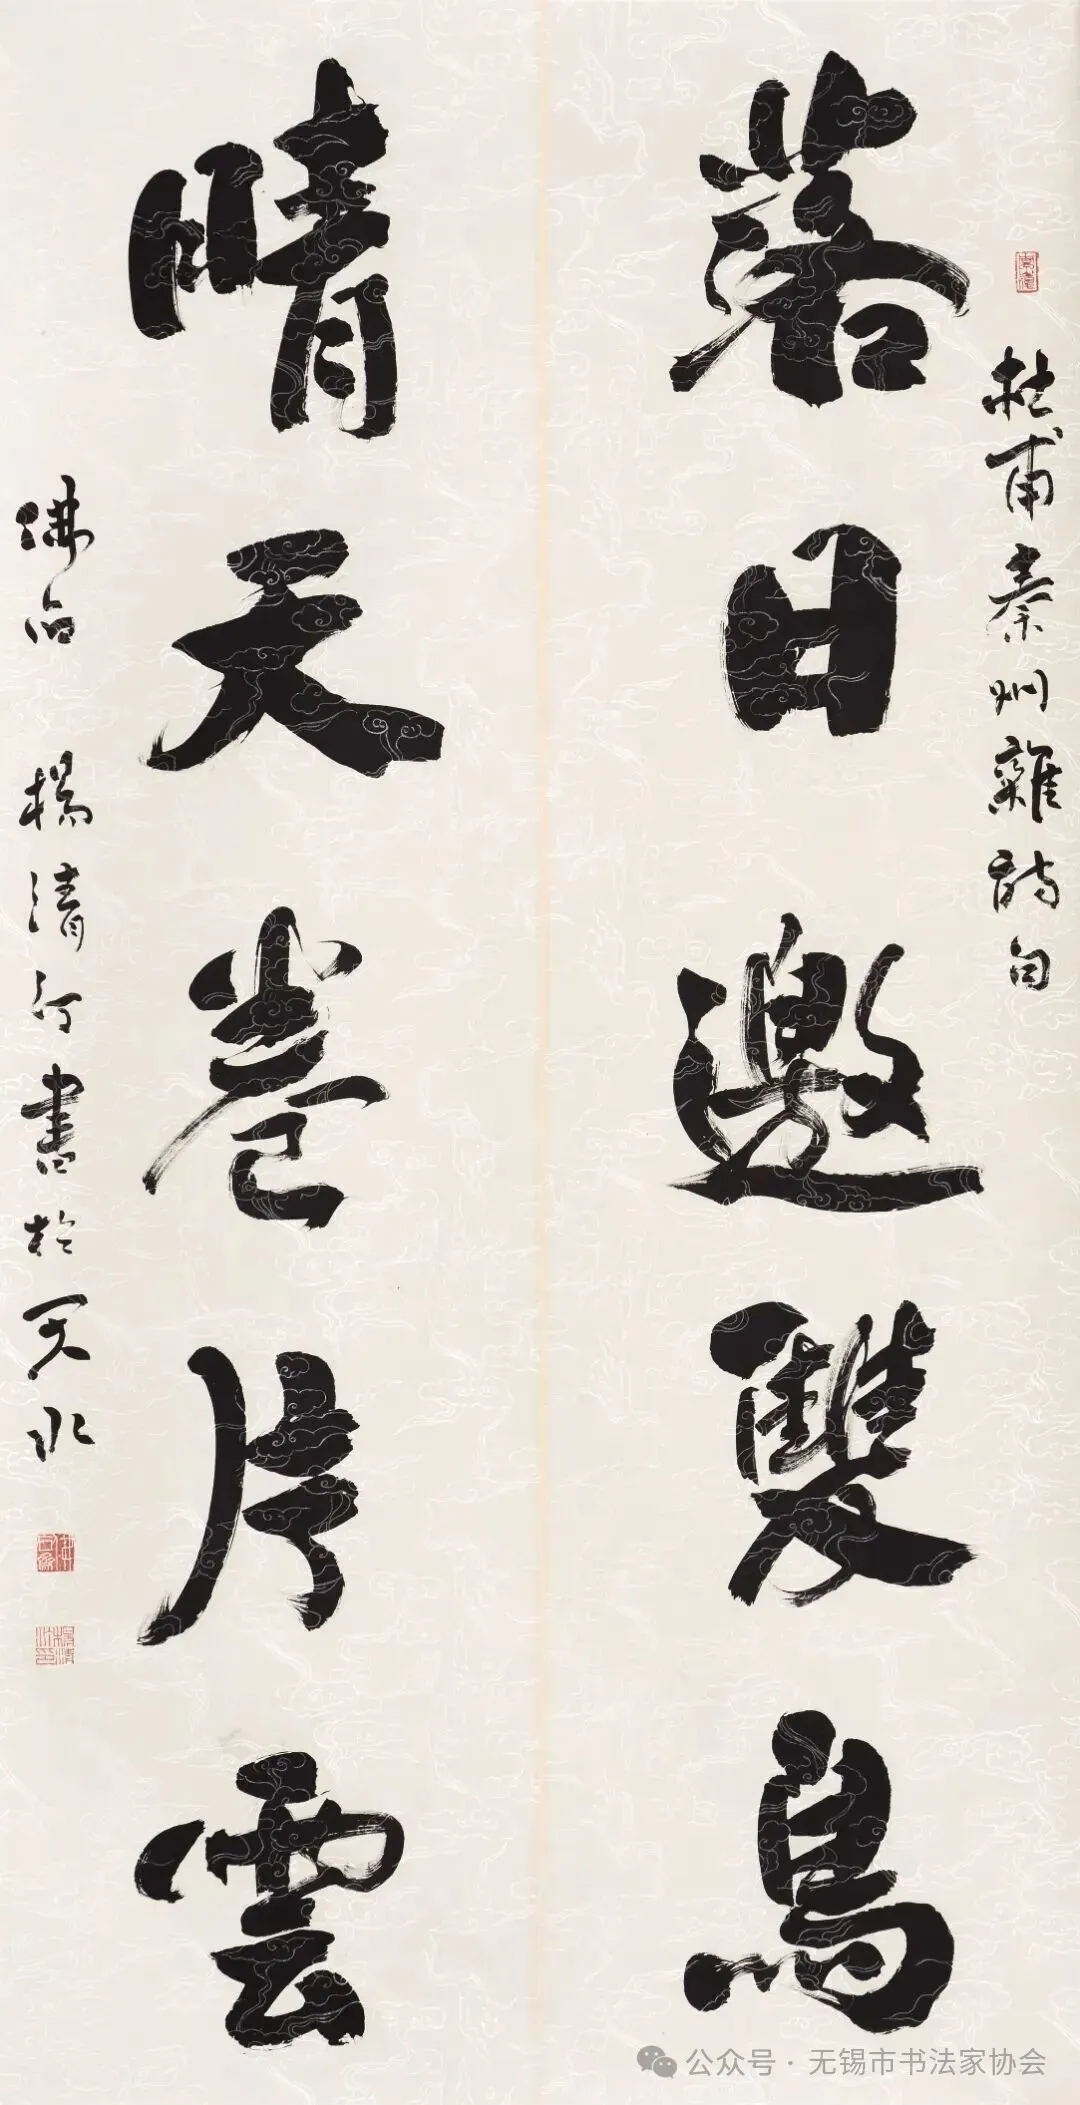 落日邀雙鳥
晴天卷片雲
杜甫秦州雜詩句
楊清汀書於天水
公众号·无锡市书法家协会